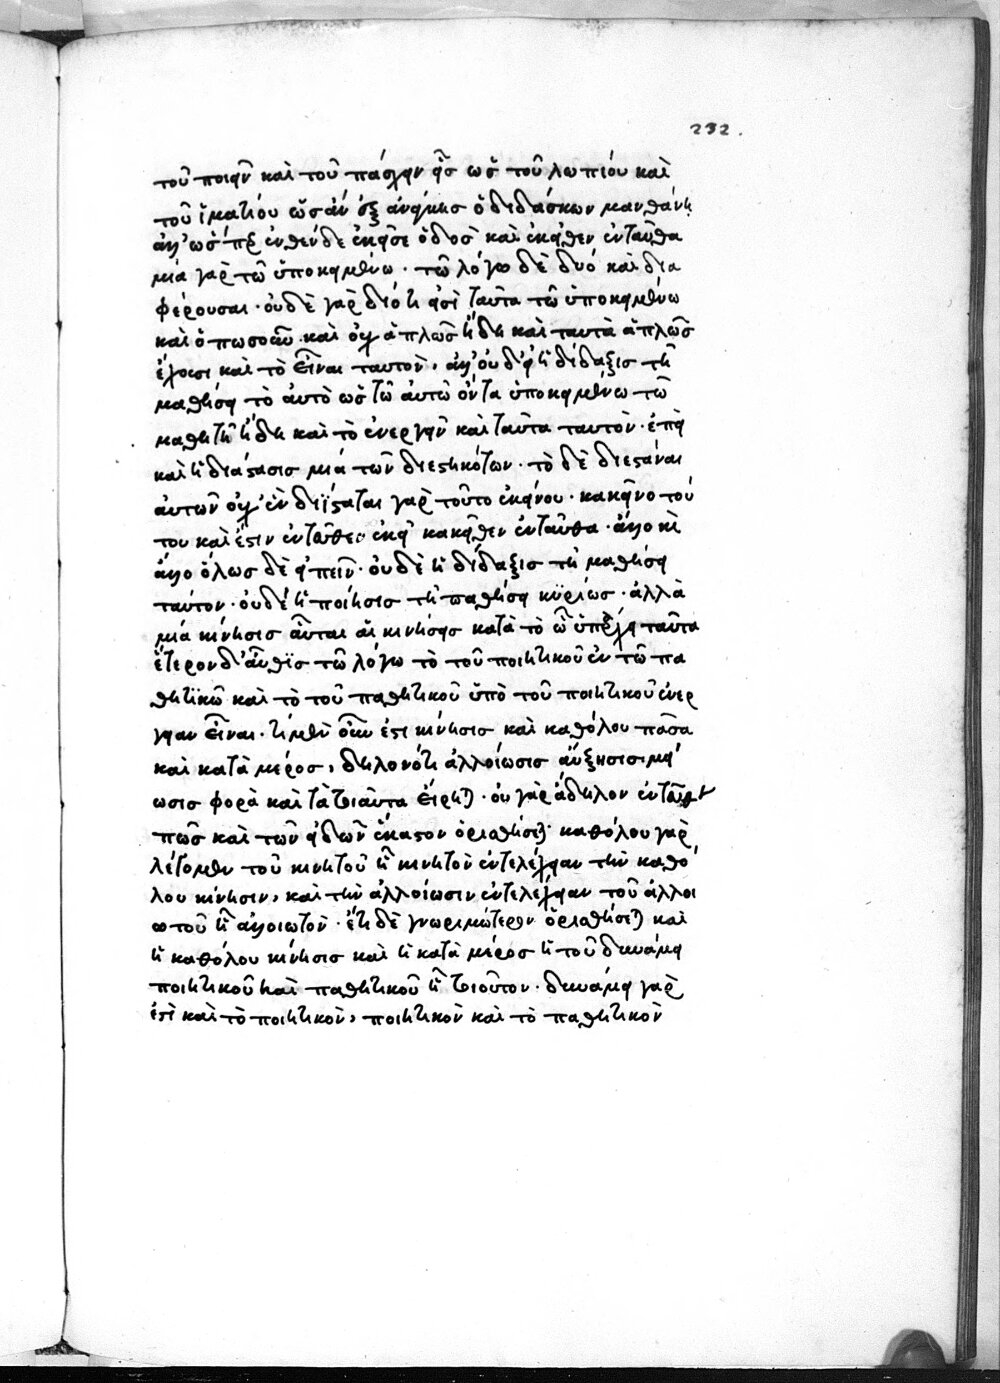 232.
τοῦ ποιεῖν καὶ τοῦ πάσχειν εἷς ὡς τοῦ λωπίου καὶ
τοῦ ἱματίου ὥς ἂν ἐξ ἀνάγκης ὁ διδάσκων μανθάνῃ
ἀλλ' ὥσπερ ἐνθένδε ἐκεῖσε ὁδὸς καὶ ἐκεῖθεν ἐνταῦθα
μία γὰρ τῷ ὑποκειμένῳ · τῷ λόγῳ δὲ δύο καὶ δια
φέρουσαι · οὐδὲ γὰρ διότι εἰσὶ ταῦτα τῷ ὑποκειμένῳ
καὶ ὁπωσοῦν καὶ οὐχ ἁπλῶς ἤδη καὶ ταυτὰ ἁπλῶς
ἔχουσι καὶ τὸ εἶναι ταυτὸν, ἀλλ' οὐδ' εἰ ἡ δίδαξις τῇ
μαθήσει τὸ αὐτὸ ὡς τῷ αὐτῷ ὄντα ὑποκειμένῳ τῷ
μαθητῇ ἤδη καὶ τὸ ἐνεργεῖν καὶ ταῦτα ταυτὸν · ἐπεὶ
καὶ ἡ διάστασις μία τῶν διεστηκότων · τὸ δὲ διεστάναι
αὐτῶν οὐχ ἓν διΐσταται γὰρ τοῦτο ἐκείνου · κακεῖνο τού
του καὶ ἔστιν ἐντεῦθεν ἐκεῖ κακεῖθεν ἐνταῦθα · ἄλλο καὶ
ἄλλο ὅλως δὲ εἰπεῖν · οὐδὲ ἡ δίδαξις τῇ μαθήσει
ταύτον · οὐδέ ἡ ποίησις τῇ παθήσει κϋρίως · ἀλλὰ
μία κίνησις αὗται αἱ κινήσεις κατὰ τὸ ᾧ ὑπάρχει ταῦτα
ἕτερον δ' αὖθϊς τῷ λόγῳ τὸ τοῦ ποιητικοῦ ἐν τῷ πα
θητϊκῷ καὶ τὸ τοῦ παθητικοῦ ὑπὸ τοῦ ποιητικοῦ ἐνερ
γειαν εἶναι · τί μὲν οὖν ἐστι κίνησις καὶ καθόλου πᾶσα
καὶ κατὰ μέρος, δηλονότι ἀλλοίωσις αὔξησις μεί
ωσις φορὰ καὶ τὰ τοιαῦτα εἴρηται · οὐ γὰρ ἄδηλον ἐνταῦθα
πῶς καὶ τῶν εἰδῶν ἕκαστον ὁρισθήσεται · καθόλου γὰρ
λέγομεν τοῦ κινητοῦ ᾗ κινητὸν ἐντελέχειαν τὴν καθό
λου κίνησιν, καὶ τὴν ἀλλοίωσιν ἐντελέχειαν τοῦ ἀλλοι
ωτοῦ ᾗ ἀλλοιωτὸν · ἔτι δὲ γνωριμώτερον ὁρισθήσεται καὶ
ἡ καθόλου κίνησις καὶ ἡ κατὰ μέρος ἡ τοῦ δυνάμει
ποιητικοῦ καὶ παθητικοῦ ᾗ τοιοῦτον · δυνάμει γὰρ
ἐστὶ καὶ τὸ ποιητικὸν, ποιητικὸν καὶ τὸ παθητικὸν